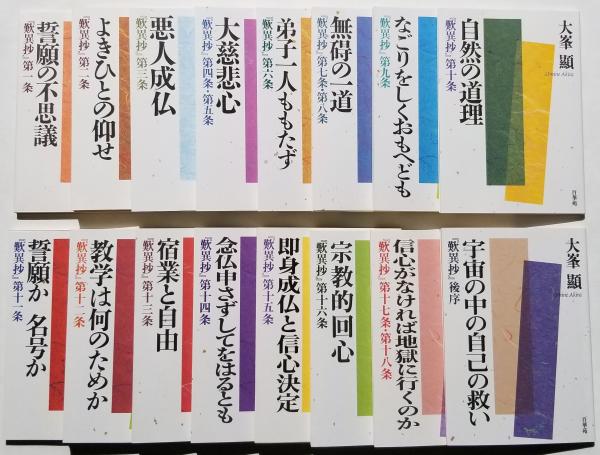 誓願の不思議
『歎異抄』第一条
よきひとの仰せ
『歎異抄』第二条
悪人成仏
『歎異抄』第三条
大慈悲心
『歎異抄』第四条・第五条
弟子一人ももたず
『歎異抄』第六条
無碍の一道
『歎異抄』第七条・第八条
なごりをしくおもへども
『歎異抄』第九条
大峯 顯
Ohmine Akira
自然の道理
『歎異抄』第十条
百華苑
誓願か 名号か
『歎異抄』第十一条
教学は何のためか
『歎異抄』第十二条
宿業と自由
『歎異抄』第十三条
念仏申さずしてをはるとも
『歎異抄』第十四条
即身成仏と信心決定
『歎異抄』第十五条
宗教的回心
『歎異抄』第十六条
信心がなければ地獄に行くのか
『歎異抄』第十七条・第十八条
大峯 顯
Ohmine Akira
宇宙の中の自己の救い
『歎異抄』後序
百華苑